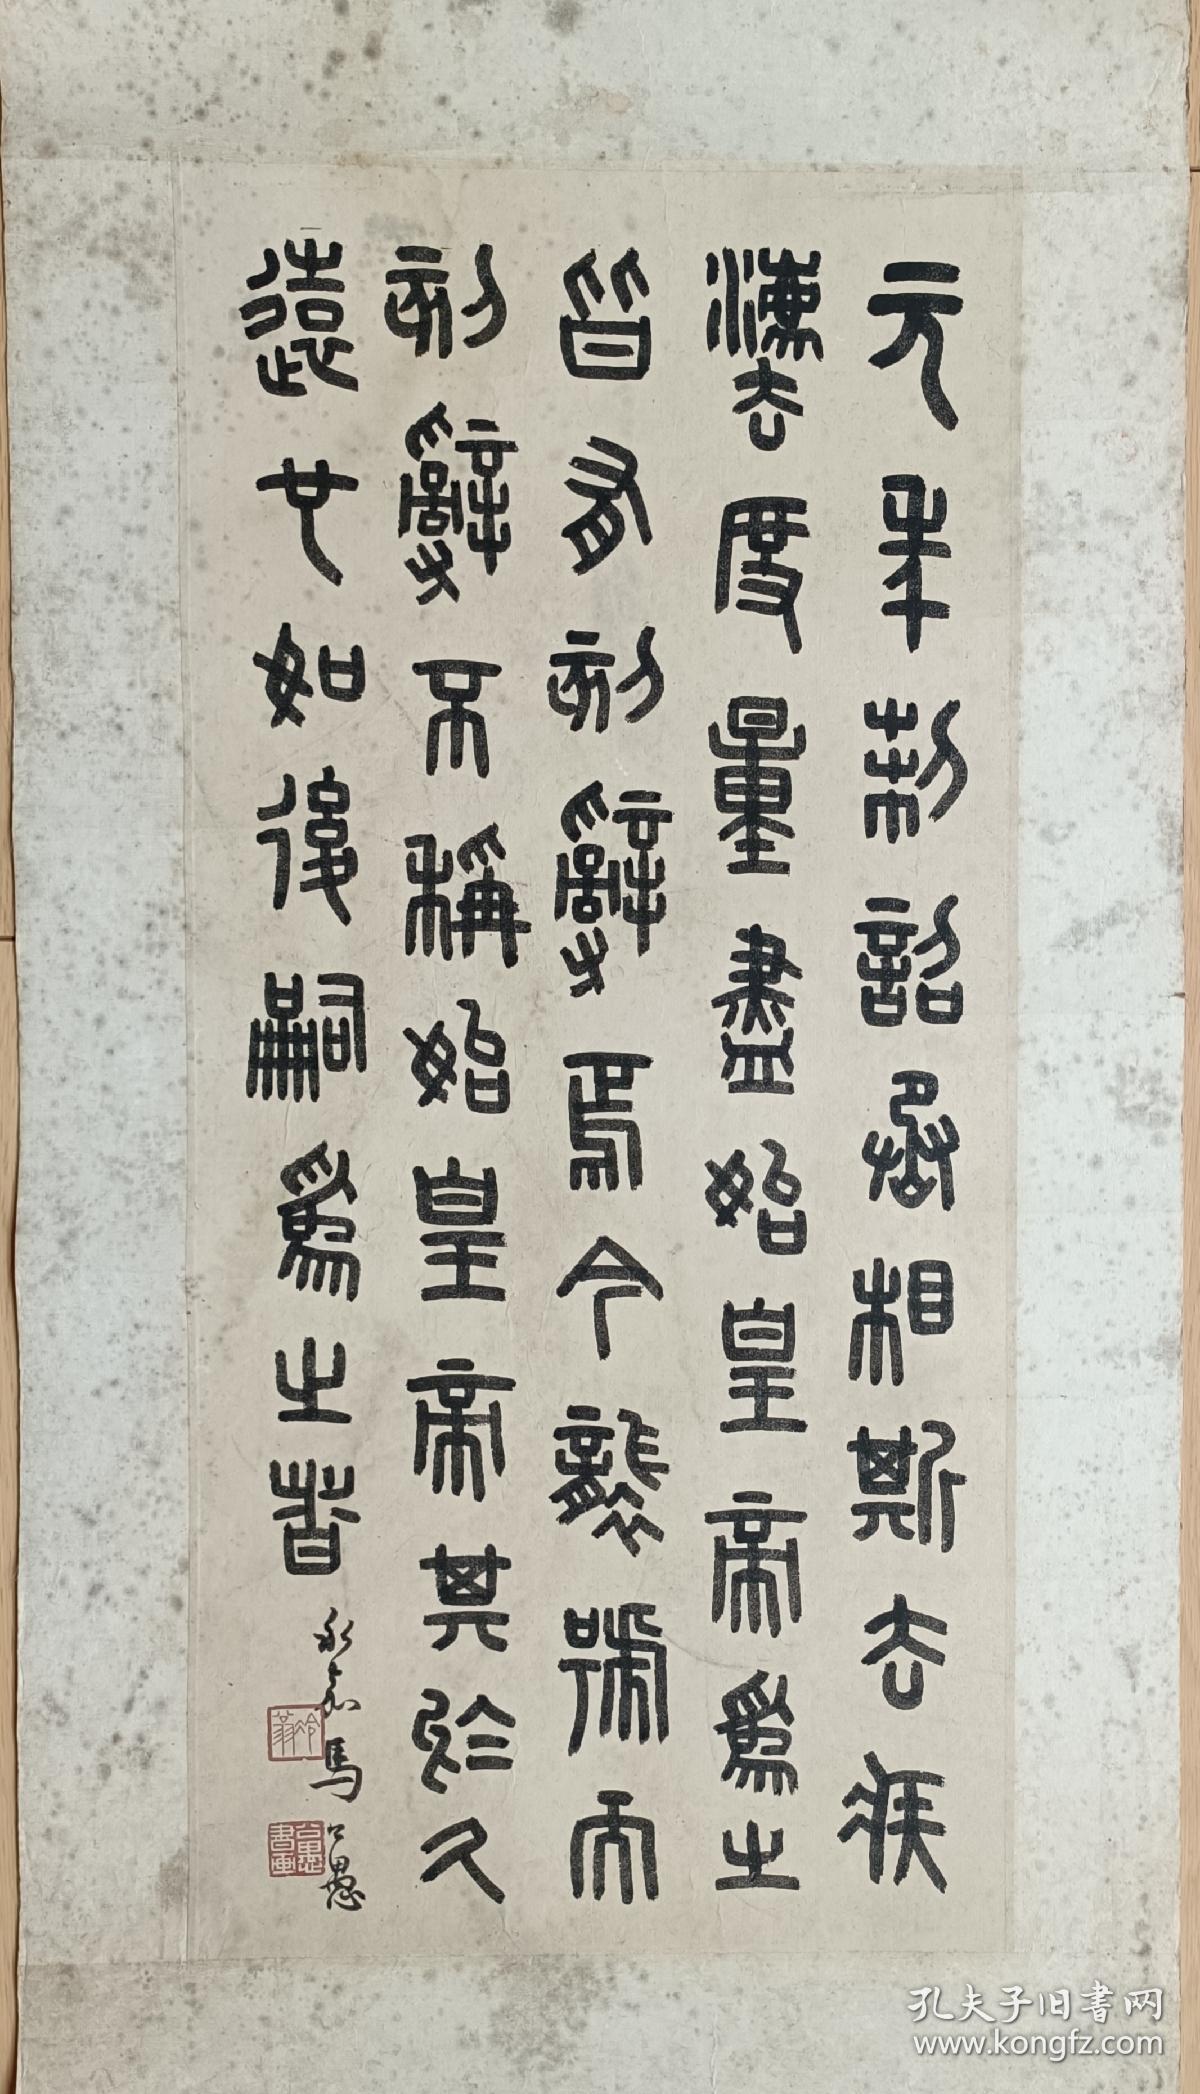 元年制詔丞相斯去疾
灋度量盡始皇帝爲之
皆有刻辭焉今襲號而
刻辭不稱始皇帝其於久
遠也如後嗣爲之者
永嘉馬公愚
冷翁
公愚書畫
孔夫子旧書网
www.kongfz.com